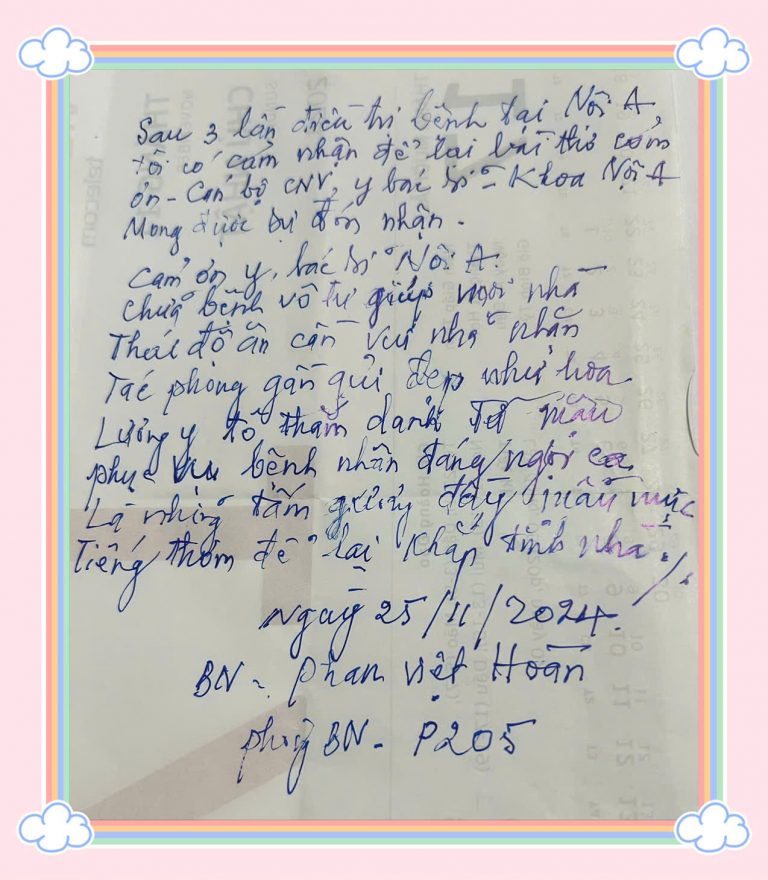 Sau 3 lần điều trị bệnh tại Nội A,
tôi có cảm nhận để lại bài thơ cảm
ơn - Cán bộ CNV, y bác sĩ - Khoa Nội A
Mong được sự đón nhận.
Cảm ơn y, bác sĩ Nội A
Chữa bệnh vô tư giúp mọi nhà
Thái độ ân cần vui nhã nhặn
Tác phong gần gũi đẹp như hoa
Lương y tô thắm danh từ mẫu
phục vụ bệnh nhân đáng ngợi ca
Là những tấm gương đầy mẫu mực
Tiếng thơm để lại khắp tỉnh nhà ./.
Ngày 25/11/2024.
BN - Phạm Việt Hoàn
phòng BN - P205
telecom